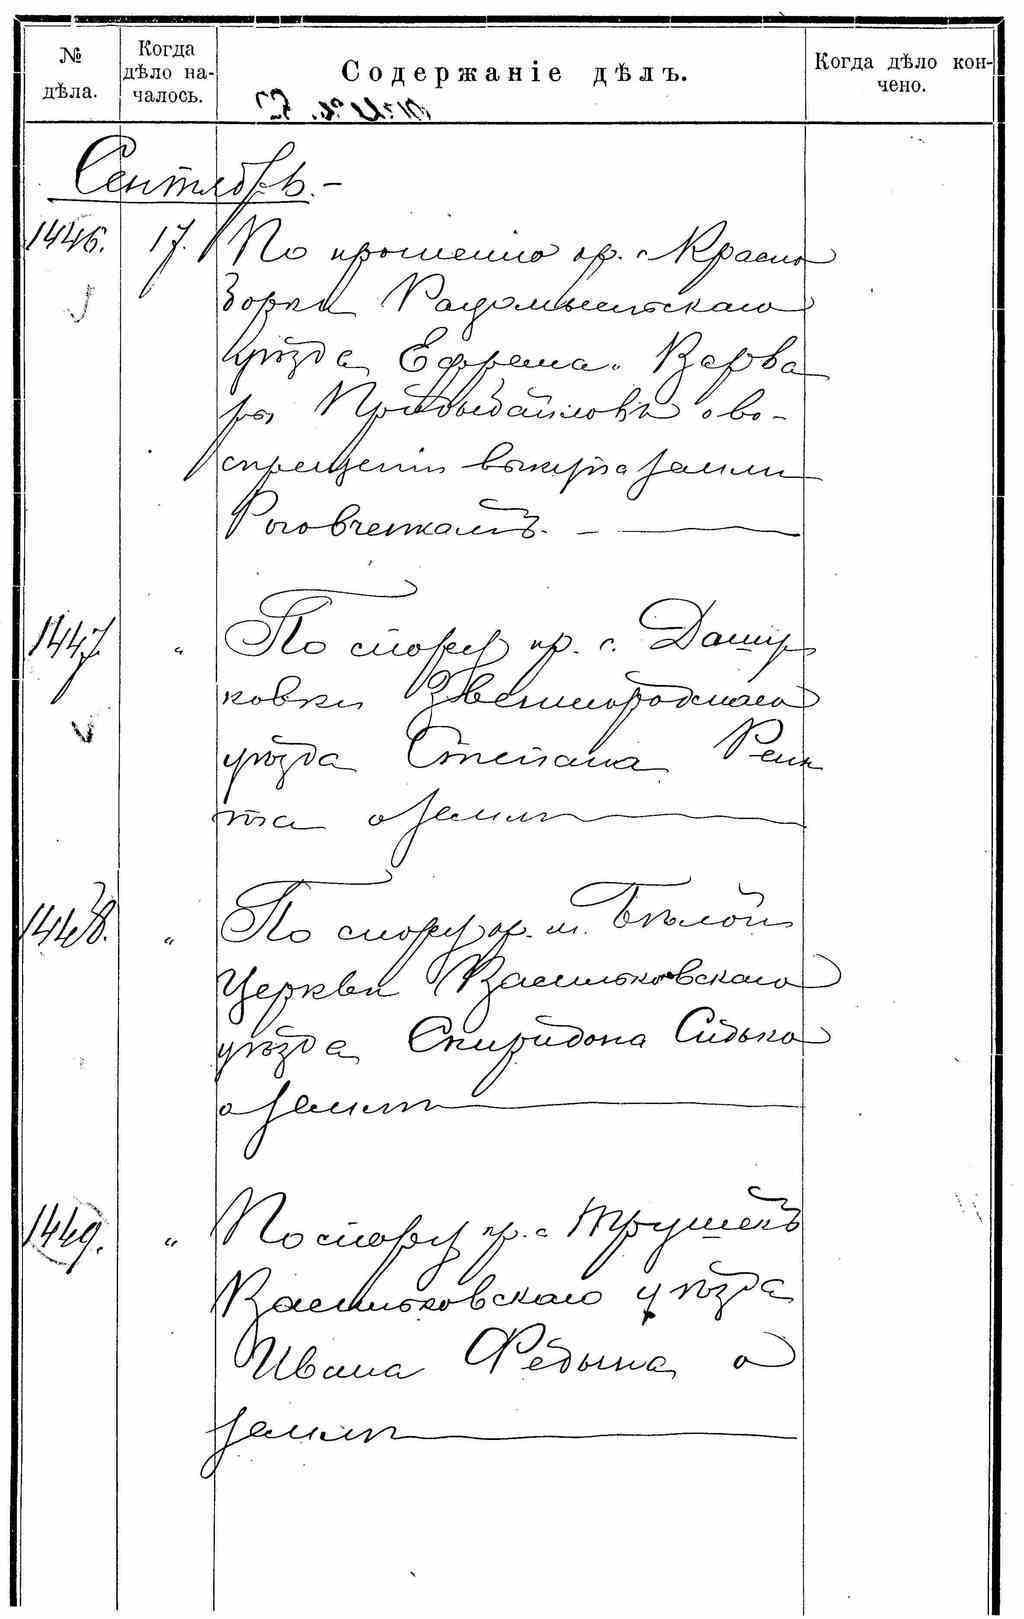 № дѣла.
Когда дѣло на-
чалось.
Содержаніе дѣлъ.
Когда дѣло кон-
чено.
Сентябрь.-
1446. 17. По прошенію кр. с. Красно
борки Радомысльскаго
уѣзда Ефрема и Варва
ры о во-
спрещеніи выкупа земли
Роговченкамъ. -
1447. " По спору кр. с. Дашу
ковки Звенигородскаго
уѣзда Степана
о землѣ
1448. " По спору кр. м. Бѣлой
Церкви Васильковскаго
уѣзда Спиридона Сидька
о землѣ
1449. " По спору кр. с. Трушекъ
Васильковскаго уѣзда
Ивана Федына о
землѣ